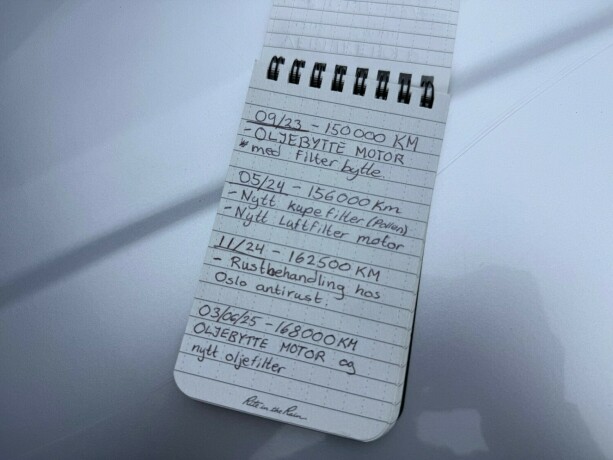 09/23 - 150000 KM
- OLJEBYTTE MOTOR
* med filter bytte.
05/24 - 156000 Km
- Nytt kupefilter (Pollen)
- Nytt Luftfilter motor
11/24 - 162500 KM
- Rustbehandling hos
Oslo antirust.
03/06/25 - 168000KM
OLJEBYTTE MOTOR og
nytt oljefilter
Rite in the Rain